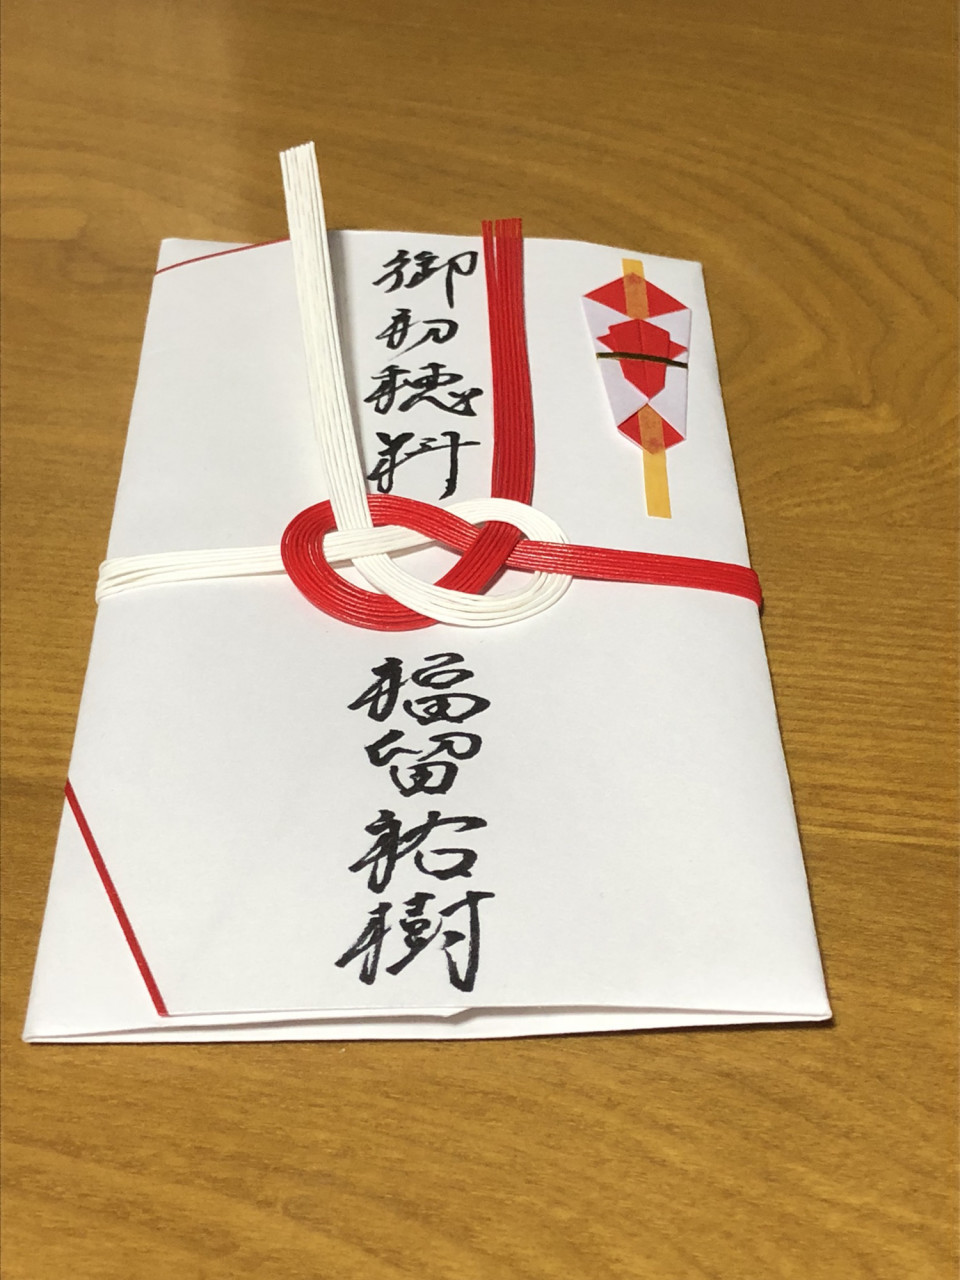 御初穂料
福留祐樹